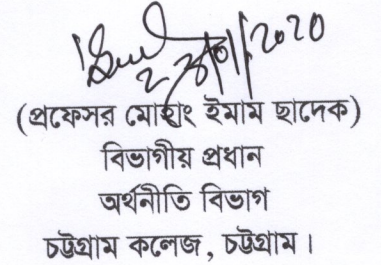 (প্রফেসর মোহাং ইমাম ছাদেক)
বিভাগীয় প্রধান
অর্থনীতি বিভাগ
চট্টগ্রাম কলেজ, চট্টগ্রাম।